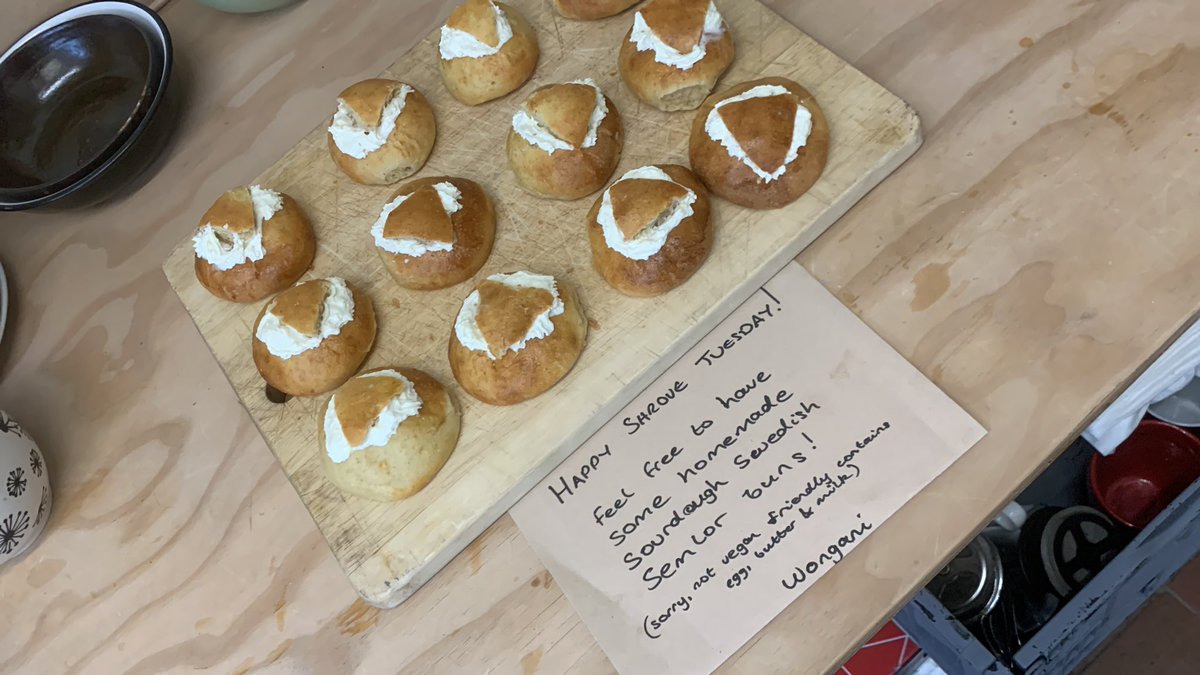 HAPPY SHROVE TUESDAY!
Feel free to have
some homemade
sourdough Swedish
Semlor buns!
(sorry, not vegan friendly contains
egg, butter & milk)
Wongani